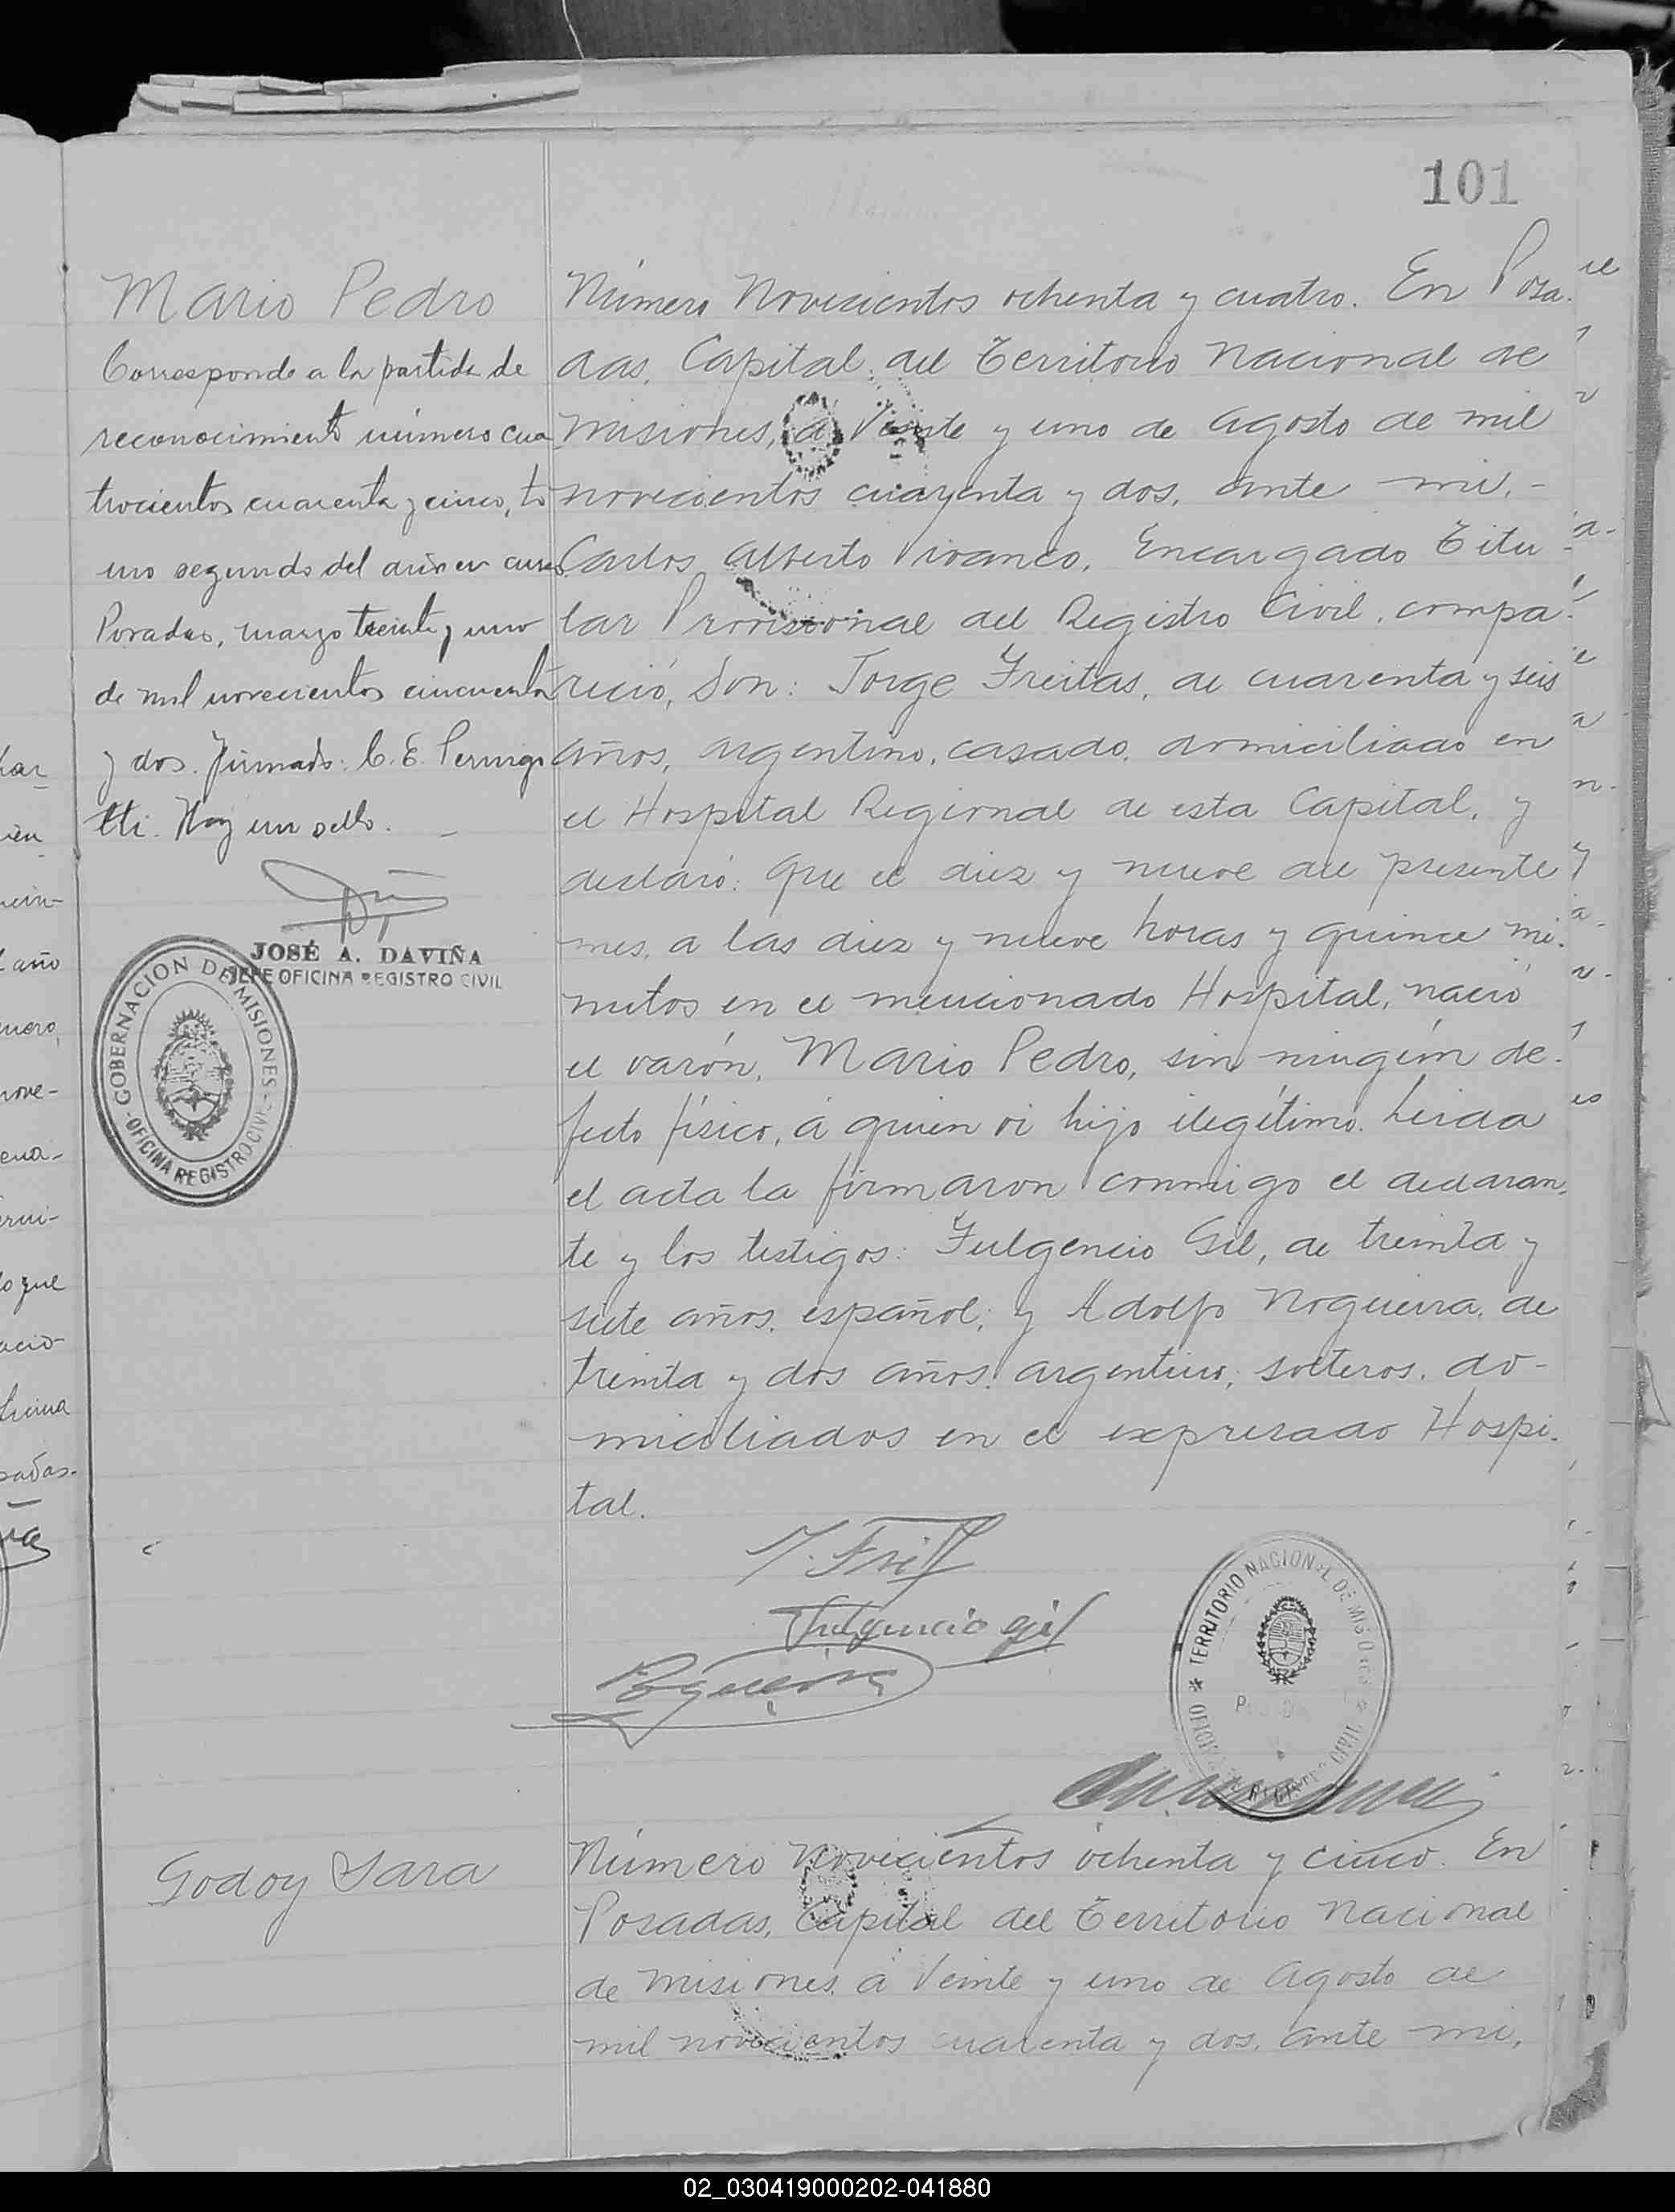 101
Mario Pedro
Corresponde a la partida de
reconocimiento número cua
trocientos cuarenta y cinco, to
mo segundo del año en curso.
Posadas, marzo treinta y uno
de mil novecientos cincuenta
y dos. Firmado: C. E. Pernigo
tti. Hay un sello.
JOSÉ A. DAVIÑA
JEFE OFICINA REGISTRO CIVIL
GOBERNACION DE MISIONES
OFICINA REGISTRO CIVIL
Número Novecientos ochenta y cuatro. En Posa-
das, Capital del Territorio Nacional de
Misiones, a Veinte y uno de Agosto de mil
novecientos cuarenta y dos, ante mi, -
Carlos Alberto Vivanco, Encargado Titu-
lar Provisional del Registro Civil, compa-
reció, Don: Jorge Freitas, de cuarenta y seis
años, argentino, casado, domiciliado en
el Hospital Regional de esta Capital, y
declaró: Que el diez y nueve del presente
mes, a las diez y nueve horas y quince mi-
nutos en el mencionado Hospital, nació
el varón, Mario Pedro, sin ningún de-
fecto físico, á quien vi hijo ilegítimo. Leida
el acta la firmaron conmigo el declaran-
te y los testigos: Fulgencio Gil, de treinta y
siete años, español; y Adolfo Nogueira, de
treinta y dos años, argentino; solteros, do-
miciliados en el expresado Hospi-
tal.
J. Freit
Fulgencio Gil
Nogueira
TERRITORIO NACIONAL DE MISIONES
REGISTRO CIVIL
Godoy Sara
Número Novecientos ochenta y cinco. En
Posadas, Capital del Territorio Nacional
de Misiones, á Veinte y uno de Agosto de
mil novecientos cuarenta y dos, ante mi,
02_030419000202-041880